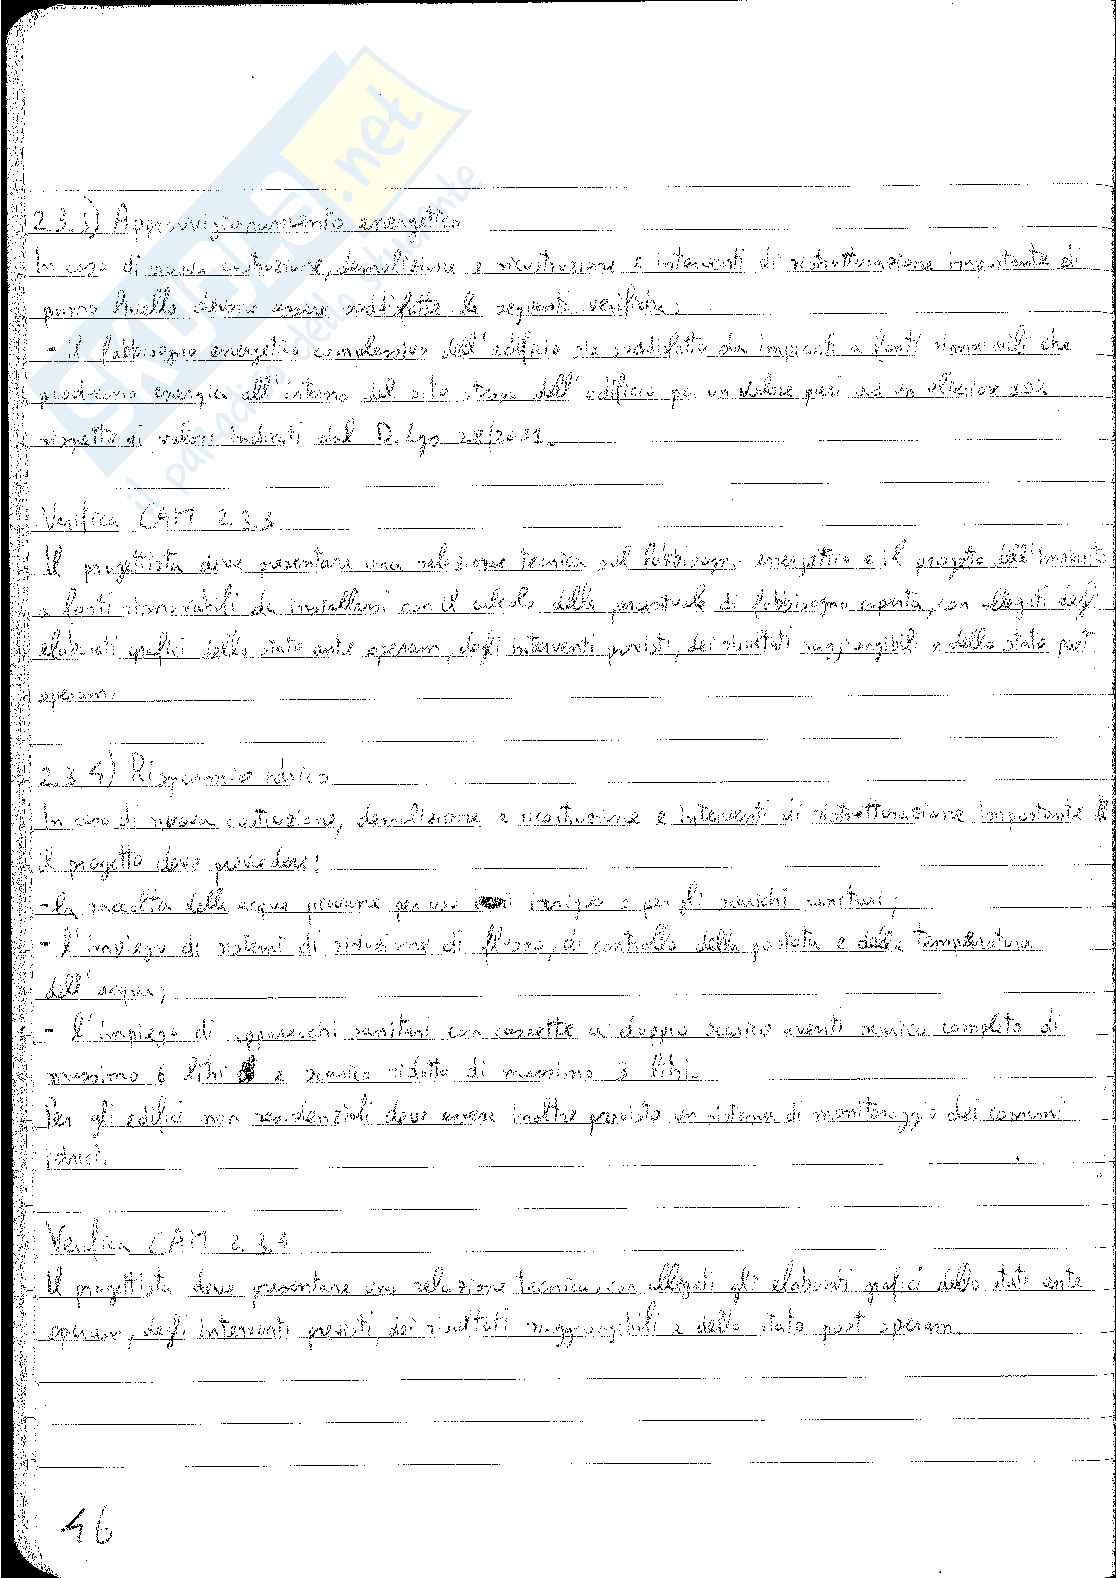 2.3.3) Approvvigionamento energetico
In caso di nuova costruzione, demolizione e ricostruzione e interventi di ristrutturazione importante di
primo livello devono essere soddisfatte le seguenti verifiche:
- il fabbisogno energetico complessivo dell'edificio sia soddisfatto da impianti a fonti rinnovabili che
producono energia all'interno del sito stesso dell'edificio per un valore pari ad un ulteriore 10%
rispetto ai valori indicati dal D.Lgs 28/2011.
Verifica CAM 2.3.3
Il progettista deve presentare una relazione tecnica sul fabbisogno energetico e il progetto dell'impianto
a fonti rinnovabili da installarsi con il calcolo della percentuale di fabbisogno coperta, con allegati degli
elaborati grafici dello stato ante operam, degli interventi previsti, dei risultati raggiungibili e dello stato post
operam.
2.3.4) Risparmio idrico
In caso di nuova costruzione, demolizione e ricostruzione e interventi di ristrutturazione importante
il progetto deve prevedere:
- la raccolta delle acque piovane per uso irriguo e per gli scarichi sanitari;
- l'impiego di sistemi di riduzione di flusso, di controllo della portata e della temperatura
dell'acqua;
- l'impiego di apparecchi sanitari con cassette a doppio scarico aventi scarico completo di
massimo 6 litri e scarico ridotto di massimo 3 litri.
Per gli edifici non residenziali deve essere inoltre previsto un sistema di monitoraggio dei consumi
idrici.
Verifica CAM 2.3.4
Il progettista deve presentare una relazione tecnica, con allegati gli elaborati grafici dello stato ante
operam, degli interventi previsti, dei risultati raggiungibili e dello stato post operam.
46
SKUOLA.net
il paradiso dello studente